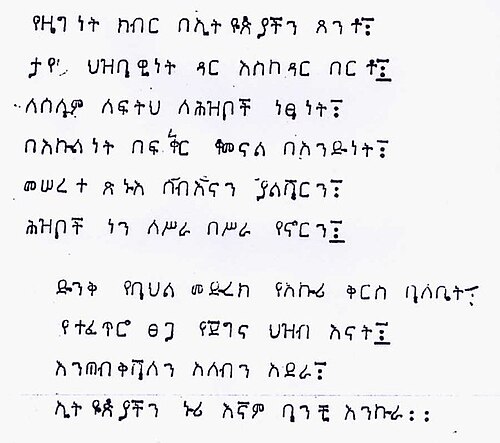 የዜግነት ክብር በኢትዮጵያችን ጸንቶ፤
ታየ ህዝባዊነት ዳር እስከዳር በርቶ፤
ለሰላም ለፍትህ ለሕዝቦች ነፃነት፤
በእኩልነት በፍቅር ቆመናል በአንድነት፤
መሠረተ ጽኑእ ሰብእናን ያልሻርን፤
ሕዝቦች ነን ለሥራ በሥራ የኖርን፤
ድንቅ የባህል መድረክ የአኩሪ ቅርስ ባለቤት፤
የተፈጥሮ ፀጋ የጀግና ህዝብ እናት፤
እንጠብቅሻለን አለብን አደራ፤
ኢትዮጵያችን ኑሪ እኛም ባንቺ እንኩራ፡፡